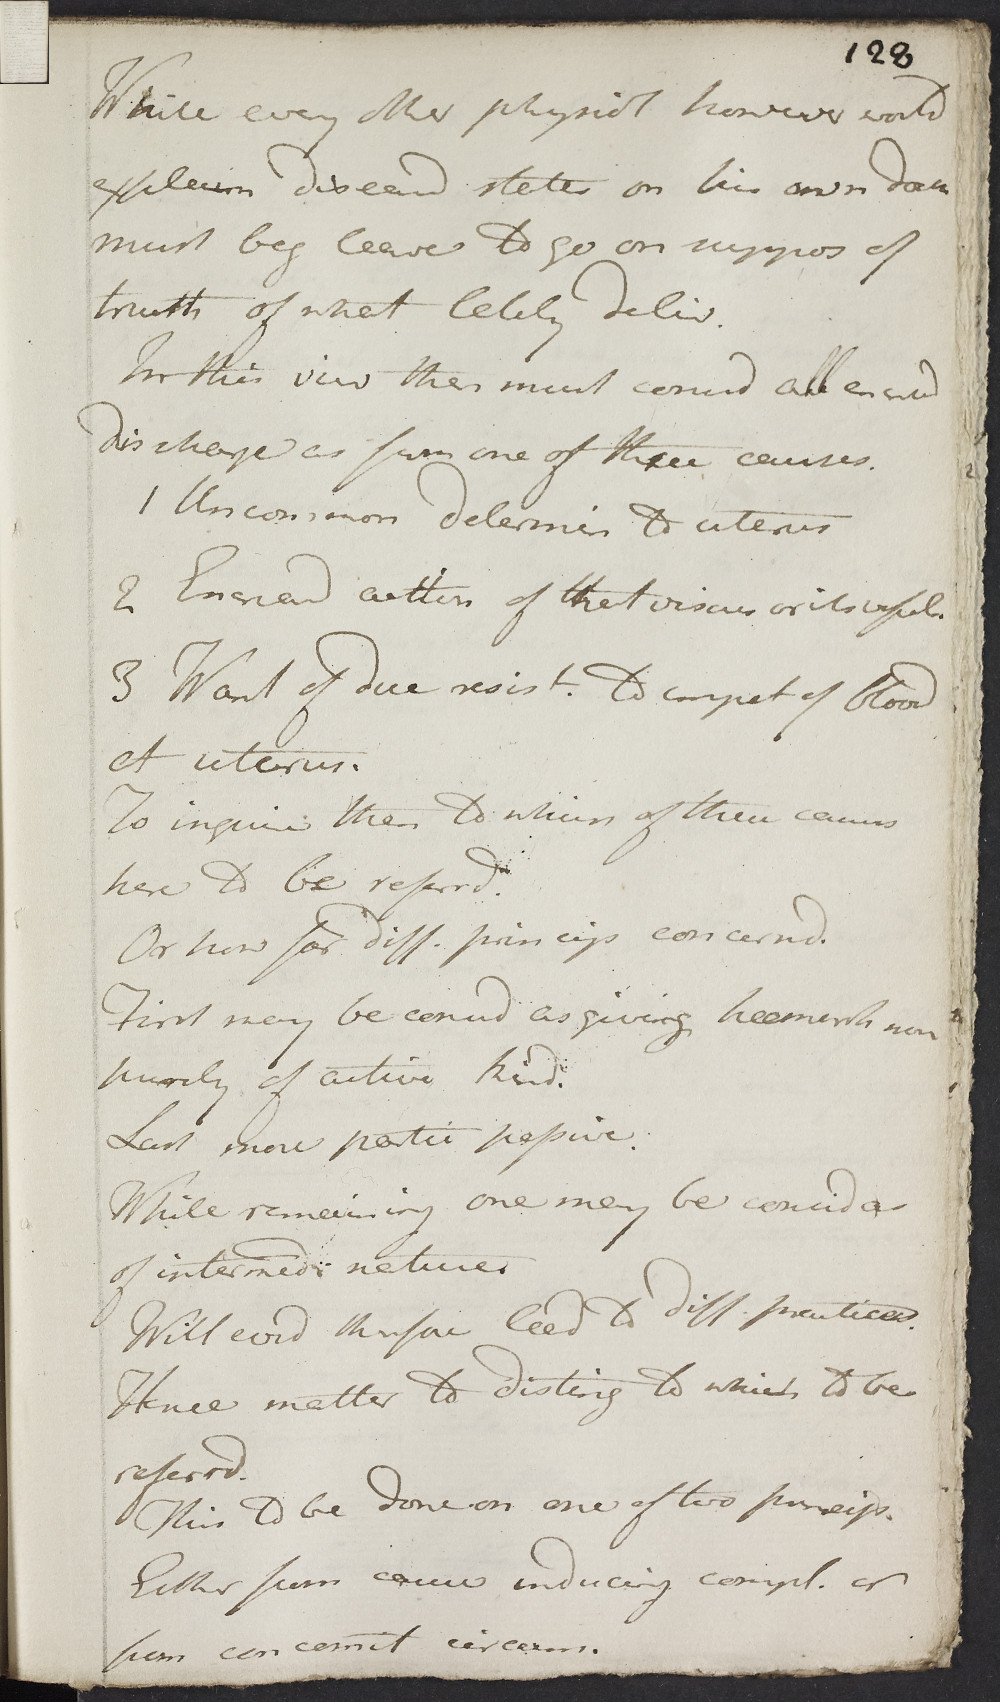 128
While every other physiol however would
explain diseasd states on his own doct
must beg leave to go on suppos of
truth of what lately deliv.
In this view then must consid all encreasd
discharge as from one of three causes.
1 Uncommon determin to uterus
2 Encreasd action of that viscus or its vessels.
3 Want of due resist. to impet of blood
at uterus.
To inquire then to which of these causes
here to be referrd.
Or how far diff. princip concernd.
First may be consid as giving haemorrh
purely of active kind.
Last more partic passive.
While remaining one may be consid as
of intermed: nature
Will evid therefore lead to diff. practices.
Hence matter to disting to which to be
referrd.
This to be done on one of two princip.
Either from cause inducing compl. or
from concomit circum.